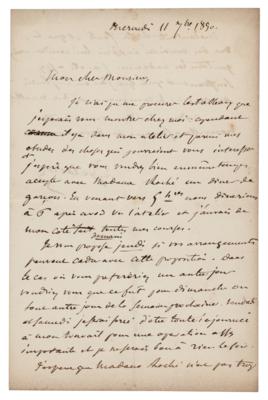 Mercredi 11 7bre 1890.
Mon cher Monsieur,
Je n'ai pu me procurer les tableaux que
je pensais vous montrer chez moi. cependant
il y a dans mon atelier et parmi mes
études des choses qui pourraient vous intéresser
j'espère que vous voudrez bien en même temps
accepter avec Madame Roché un dîner de
garçons. En venant vers 5 hres nous dînerions
à 6 après avoir vu l'atelier et j'aurais de
mon côté fait toutes mes courses.
demain
Je vous propose jeudi si vos arrangements
peuvent cadrer avec cette proposition. Dans
le cas où vous préféreriez un autre jour
vendredi que ce fut pour dimanche ou
tout autre jour de la semaine prochaine. Vendredi
et samedi je serai pris toute la journée
à mon travail pour une opération
importante et je ne serais bon à rien le soir.
J'espère que Madame Roché n'ira pas trop